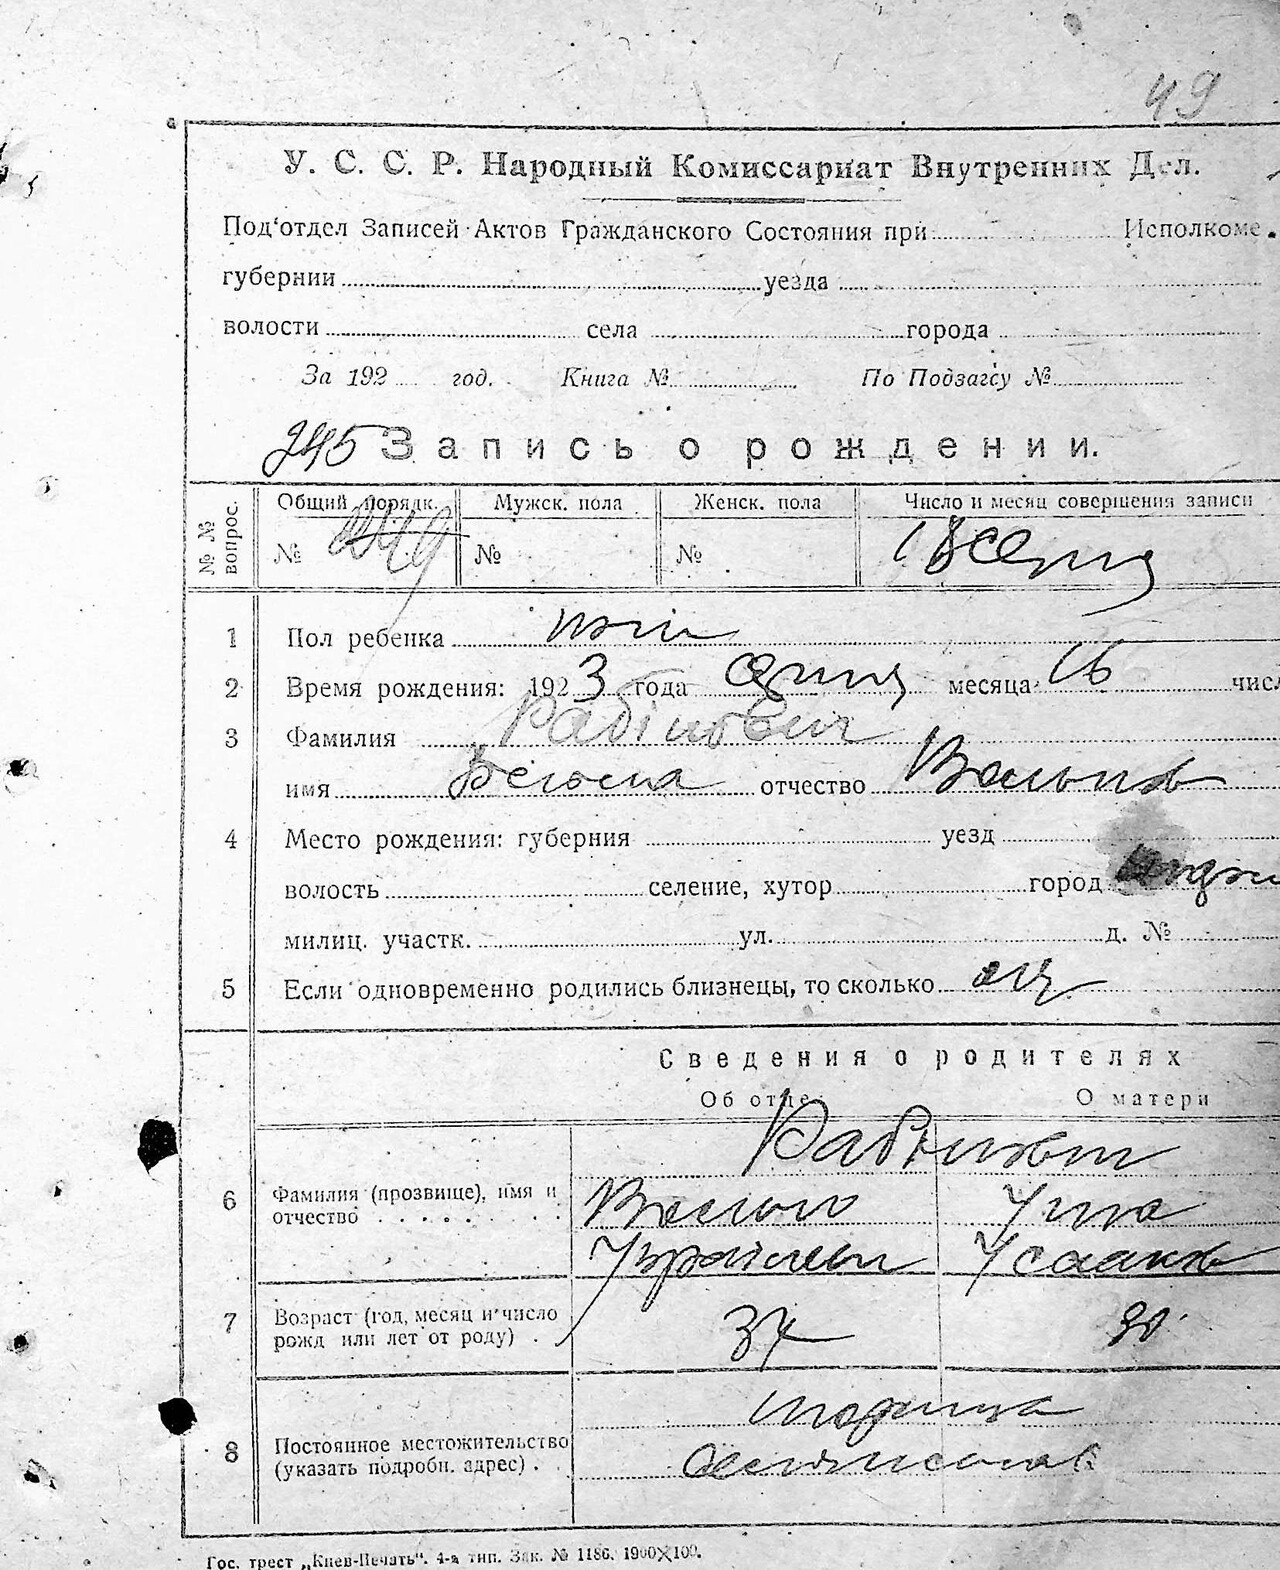 49
У. С. С. Р. Народный Комиссариат Внутренних Дел.
Под'отдел Записей Актов Гражданского Состояния при Исполкоме.
губернии уезда
волости села города
За 192 год. Книга № По Подзагсу №
245 Запись о рождении.
№ № вопрос.
Общий порядк. Мужск. пола Женск. пола Число и месяц совершения записи
№ 249 № №
1 Пол ребенка
2 Время рождения: 1923 года месяца 16 числ
3 Фамилия Рабінович
имя отчество
4 Место рождения: губерния уезд
волость селение, хутор город
милиц. участк. ул. д. №
5 Если одновременно родились близнецы, то сколько
Сведения о родителях
Об отце О матери
6 Фамилия (прозвище), имя и отчество
Рабінович
7 Возраст (год, месяц и число рожд или лет от роду) . 37 30
8 Постоянное местожительство (указать подробн. адрес) .
Гос. трест „Киев-Печать". 4-я тип. Зак. № 1186. 1900×100.